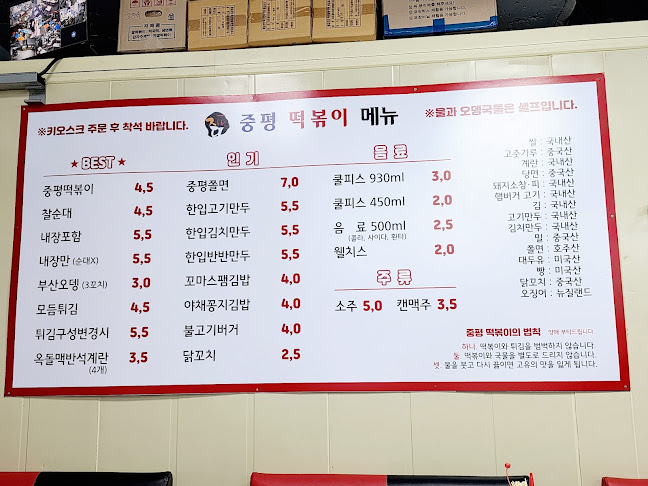 ※키오스크 주문 후 착석 바랍니다.
중평 떡볶이 메뉴
※물과 오뎅국물은 셀프입니다.
★BEST★
중평떡볶이 4,5
찰순대 4,5
내장포함 5,5
내장만 (순대X) 5,5
부산오뎅 (3꼬치) 3,0
모듬튀김 4,5
튀김구성변경시 5,5
옥돌맥반석계란 3,5
(4개)
인기
중평쫄면 7,0
한입고기만두 5,5
한입김치만두 5,5
한입반반만두 5,5
꼬마스팸김밥 4,0
야채퐁지김밥 4,0
불고기버거 4,0
닭꼬치 2,5
음료
쿨피스 930ml 3,0
쿨피스 450ml 2,0
음 료 500ml 2,5
(콜라, 사이다, 환타)
웰치스 2,0
주류
소주 5,0 캔맥주 3,5
쌀 : 국내산
고춧가루 : 중국산
계란 : 국내산
당면 : 중국산
돼지소창·피 : 국내산
햄버거 고기 : 국내산
김 : 국내산
고기만두 : 국내산
김치만두 : 국내산
밀 : 중국산
쫄면 : 호주산
대두유 : 미국산
빵 : 미국산
닭꼬치 : 중국산
오징어 : 뉴질랜드
중평 떡볶이의 법칙 양해 부탁드립니다.
하나. 떡볶이와 튀김을 범벅하지 않습니다.
둘. 떡볶이와 국물을 별도로 드리지 않습니다.
셋. 물을 붓고 다시 끓이면 고유의 맛을 잃게 됩니다.